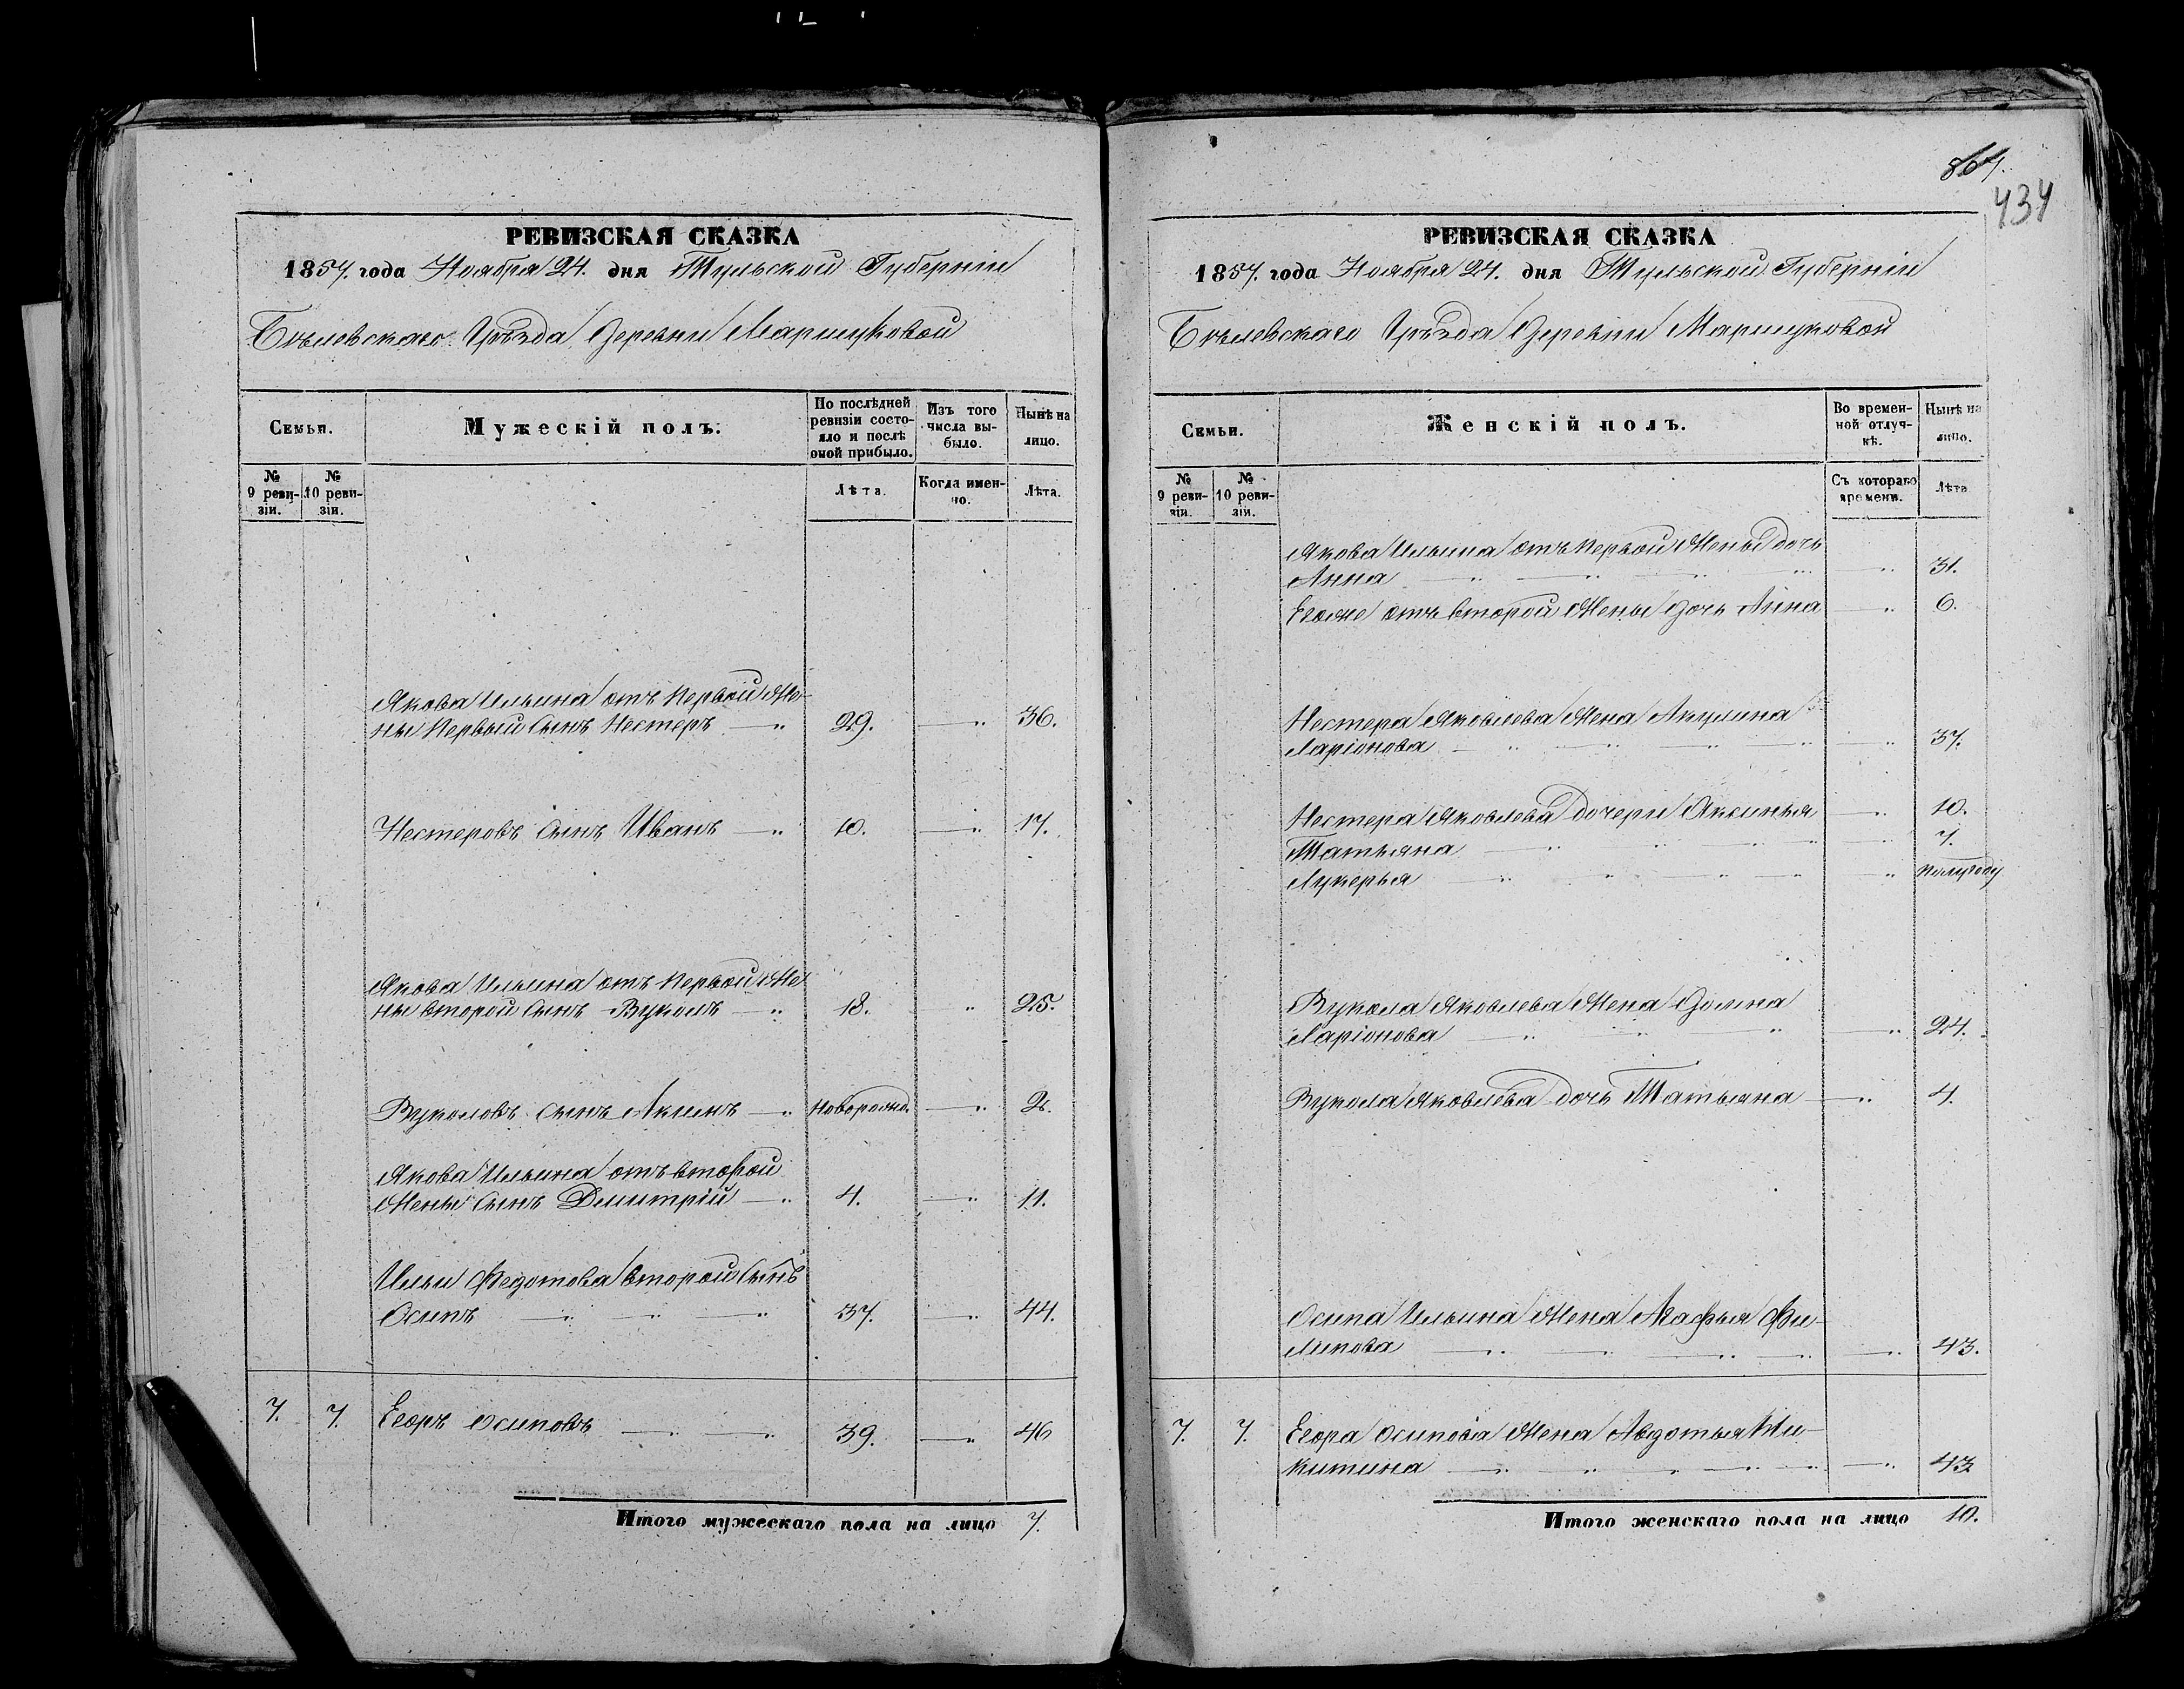 РЕВИЗСКАЯ СКАЗКА
1857. года Ноября 24. дня Тульской Губерніи
Бѣлевскаго Уѣзда Деревни Марицковой
Семьи.
Мужескій полъ.
По послѣдней ревизіи состояло и послѣ оной прибыло.
Изъ того числа выбыло.
Нынѣ на лицо.
№ 9 ревизіи.
№ 10 ревизіи.
Лѣта.
Когда именно.
Лѣта.
Якова Ильина отъ первой Же-
ны первый сынъ Нестеръ — " 29. — " 36.
Нестеровъ сынъ Иванъ — " 10. — " 17.
Якова Ильина отъ первой Же
ны второй сынъ Вуколъ — " 18. " 25.
Вуколовъ сынъ Акимъ — " Новорожд. — " 2.
Якова Ильина отъ второй
Жены сынъ Дмитрій — " 4. — " 11.
Ильи Федотова второй сынъ
Осипъ — " — " — " 37. — " 44.
7. 7. Егоръ Осиповъ — " — " 39. — " 46
Итого мужескаго пола на лицо 7.
867.
434
РЕВИЗСКАЯ СКАЗКА
1857. года Ноября 24. дня Тульской Губерніи
Бѣлевскаго Уѣзда Деревни Марицковой
Семьи.
Женскій полъ.
Во временной отлучкѣ.
Нынѣ на лицо.
№ 9 ревизіи.
№ 10 ревизіи.
Съ котораго времени.
Лѣта
Якова Ильина отъ первой Жены дочь
Анна — " — " — " " — " 31.
Егоже отъ второй Жены дочь Анна — " 6.
Нестера Яковлева Жена Акулина
Ларіонова — " — " " — " — " 37.
Нестера Яковлева дочери Аксинья — " 10.
Татьяна — " " " " " 7.
Лукерья — " " — " — " — " полугоду
Вукола Яковлева Жена Домна
Ларіонова — " " " — " 24.
Вукола Яковлева дочь Татьяна — " 4.
Осипа Ильина Жена Агафья Фи-
липова — " — " — " — " — " 43.
7. 7. Егора Осипова Жена Авдотья Ни-
китина — " " " — " — " — " 43
Итого женскаго пола на лицо 10.